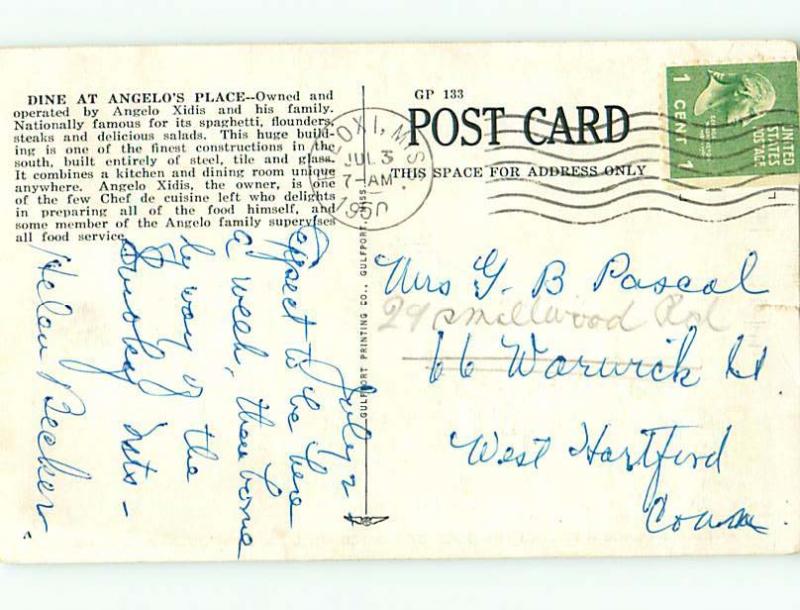 DINE AT ANGELO'S PLACE--Owned and
operated by Angelo Xidis and his family.
Nationally famous for its spaghetti, flounders,
steaks and delicious salads. This huge build-
ing is one of the finest constructions in the
south, built entirely of steel, tile and glass.
It combines a kitchen and dining room unique
anywhere. Angelo Xidis, the owner, is one
of the few Chef de cuisine left who delights
in preparing all of the food himself, and
some member of the Angelo family supervises
all food service.
July 2
Expect to be here
a week, then home
by way of the
Smokey Mts -
Helen Becker
GULFPORT PRINTING CO., GULFPORT, MISS.
GP 133
POST CARD
THIS SPACE FOR ADDRESS ONLY
BILOXI, MISS.
JUL 3
7-AM
1950
UNITED
STATES
POSTAGE
1 CENT 1
Mrs G. B Pascal
29 Smallwood Rd
66 Warwick St
West Hartford
Conn